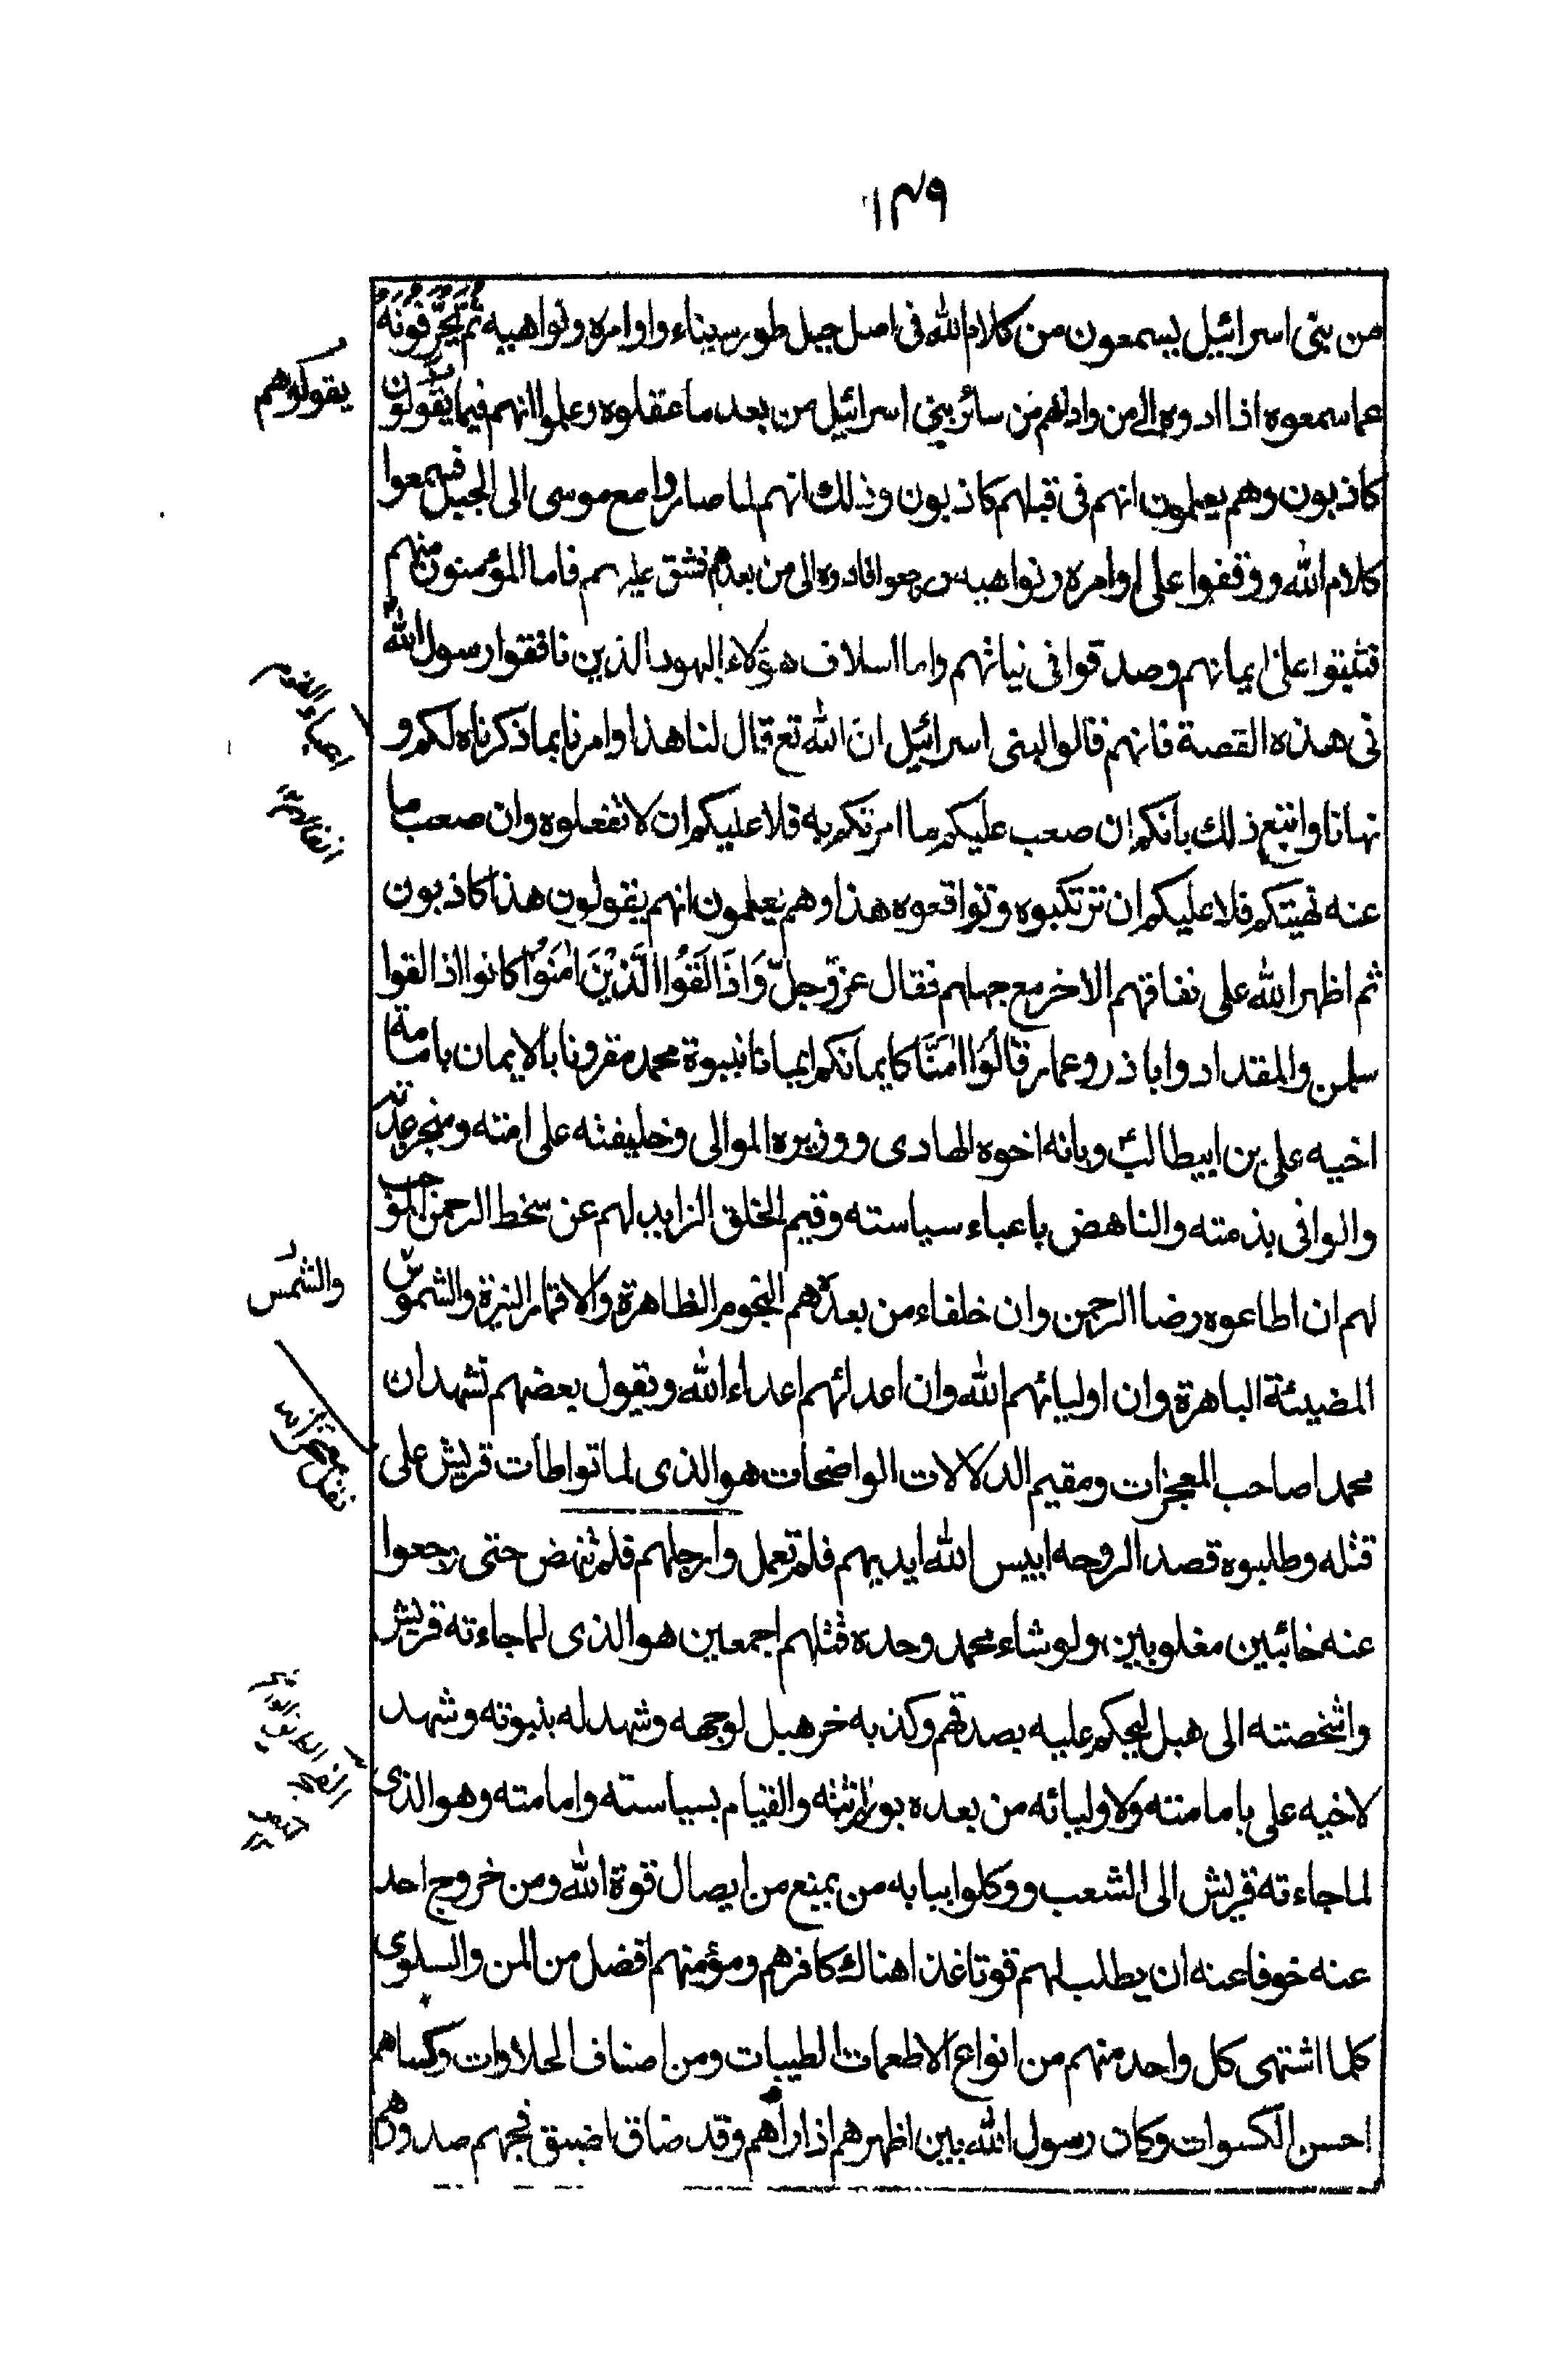 ١٣٩
من بنى اسرائيل يسمعون من كلام الله فى اصل جبل طور سيناء واوامره ونواهيه ثُمَّ يُحَرِّفُونَهُ
عما سمعوه اذا ادوه الى من ورائهم من سائر بنى اسرائيل من بعد ما عقلوه وعلموا انهم فيما يقولون
كاذبون وهم يعلمون انهم فى قيلهم كاذبون وذلك انهم لما صاروا مع موسى الى الجبل فسمعوا
كلام الله ووقفوا على اوامره ونواهيه ورجعوا فادوه الى من بعدهم فشق عليهم فاما المؤمنون منهم
فثبتوا على ايمانهم وصدقوا فى نياتهم واما اسلاف هؤلاء اليهود الذين نافقوا رسول الله
فى هذه القصة فانهم قالوا لبنى اسرائيل ان الله تع قال لنا هذا وامرنا بما ذكرناه لكم و
نهانا واتبع ذلك بانكم ان صعب عليكم ما امرتكم به فلا عليكم ان لا تفعلوه وان صعب ما
عنه نهيتكم فلا عليكم ان ترتكبوه وتواقعوه هذا وهم يعلمون انهم يقولون هذا كاذبون
ثم اظهر الله على نفاقهم الاخر مع جهلهم فقال عز وجلّ وَاِذَا لَقُوا الَّذِيْنَ اٰمَنُوْا كانوا اذا لقوا
سلمن والمقداد واباذر وعمار قَالُوْا اٰمَنَّا كايمانكم ايمانا بنبوة محمد مقرونا بالايمان بامامة
اخيه على بن ابيطالب وبانه اخوه الهادى ووزيره الموالى وخليفته على امته ومنجز عدته
والوافى بذمته والناهض باعباء سياسته وقيم الخلق الزايد لهم عن سخط الرحمن الموجب
لهم ان اطاعوه رضا الرحمن وان خلفاء من بعده هم النجوم الظاهرة والاقمار النيرة والشموس
المضيئة الباهرة وان اوليائهم الله وان اعدائهم اعداء الله ويقول بعضهم نشهد ان
محمدا صاحب المعجزات ومقيم الدلالات الواضحات هو الذى لما تواطأت قريش على
قتله وطلبوه قصد الروحه ايبس الله ايديهم فلم تعمل وارجلهم فلم تنهض حتى رجعوا
عنه خائبين مغلوبين ولو شاء محمد وحده قتلهم اجمعين هو الذى لما جاءته قريش
واشخصته الى هبل ليحكم عليه بصدقهم وكذبه خر هبل لوجهه وشهد له بنبوته وشهد
لاخيه على بامامته ولاوليائه من بعده بوراثته والقيام بسياسته وامامته وهو الذى
لما جاءته قريش الى الشعب ووكلوا ببابه من يمنع من ايصال قوة الله ومن خروج احد
عنه خوفا عنه ان يطلب لهم قوتا غذا هناك كافرهم ومؤمنهم افضل من المن والسلوى
كلما اشتهى كل واحد منهم من انواع الاطعمات الطيبات ومن اصناف الحلاوات وكساهم
احسن الكسوات وكان رسول الله بين اظهرهم اذا راهم وقد ضاق اضيق فجهم صدورهم
والشمس